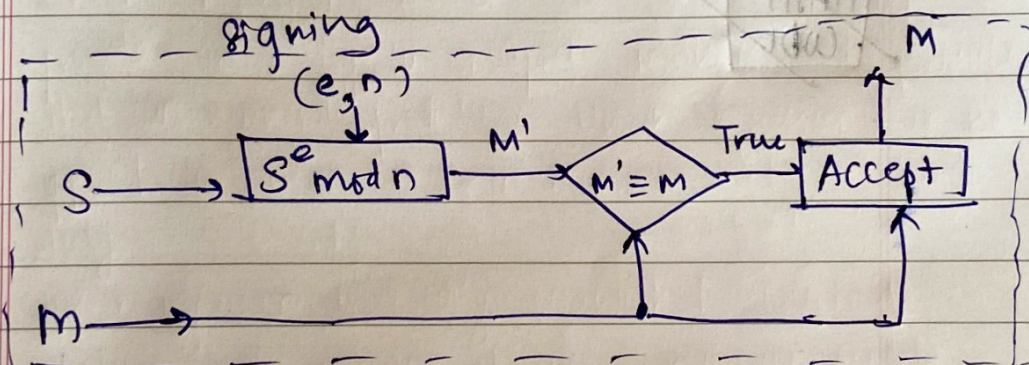 signing
M
(e,n)
S → S^e mod n M' M' ≡ M True Accept
M